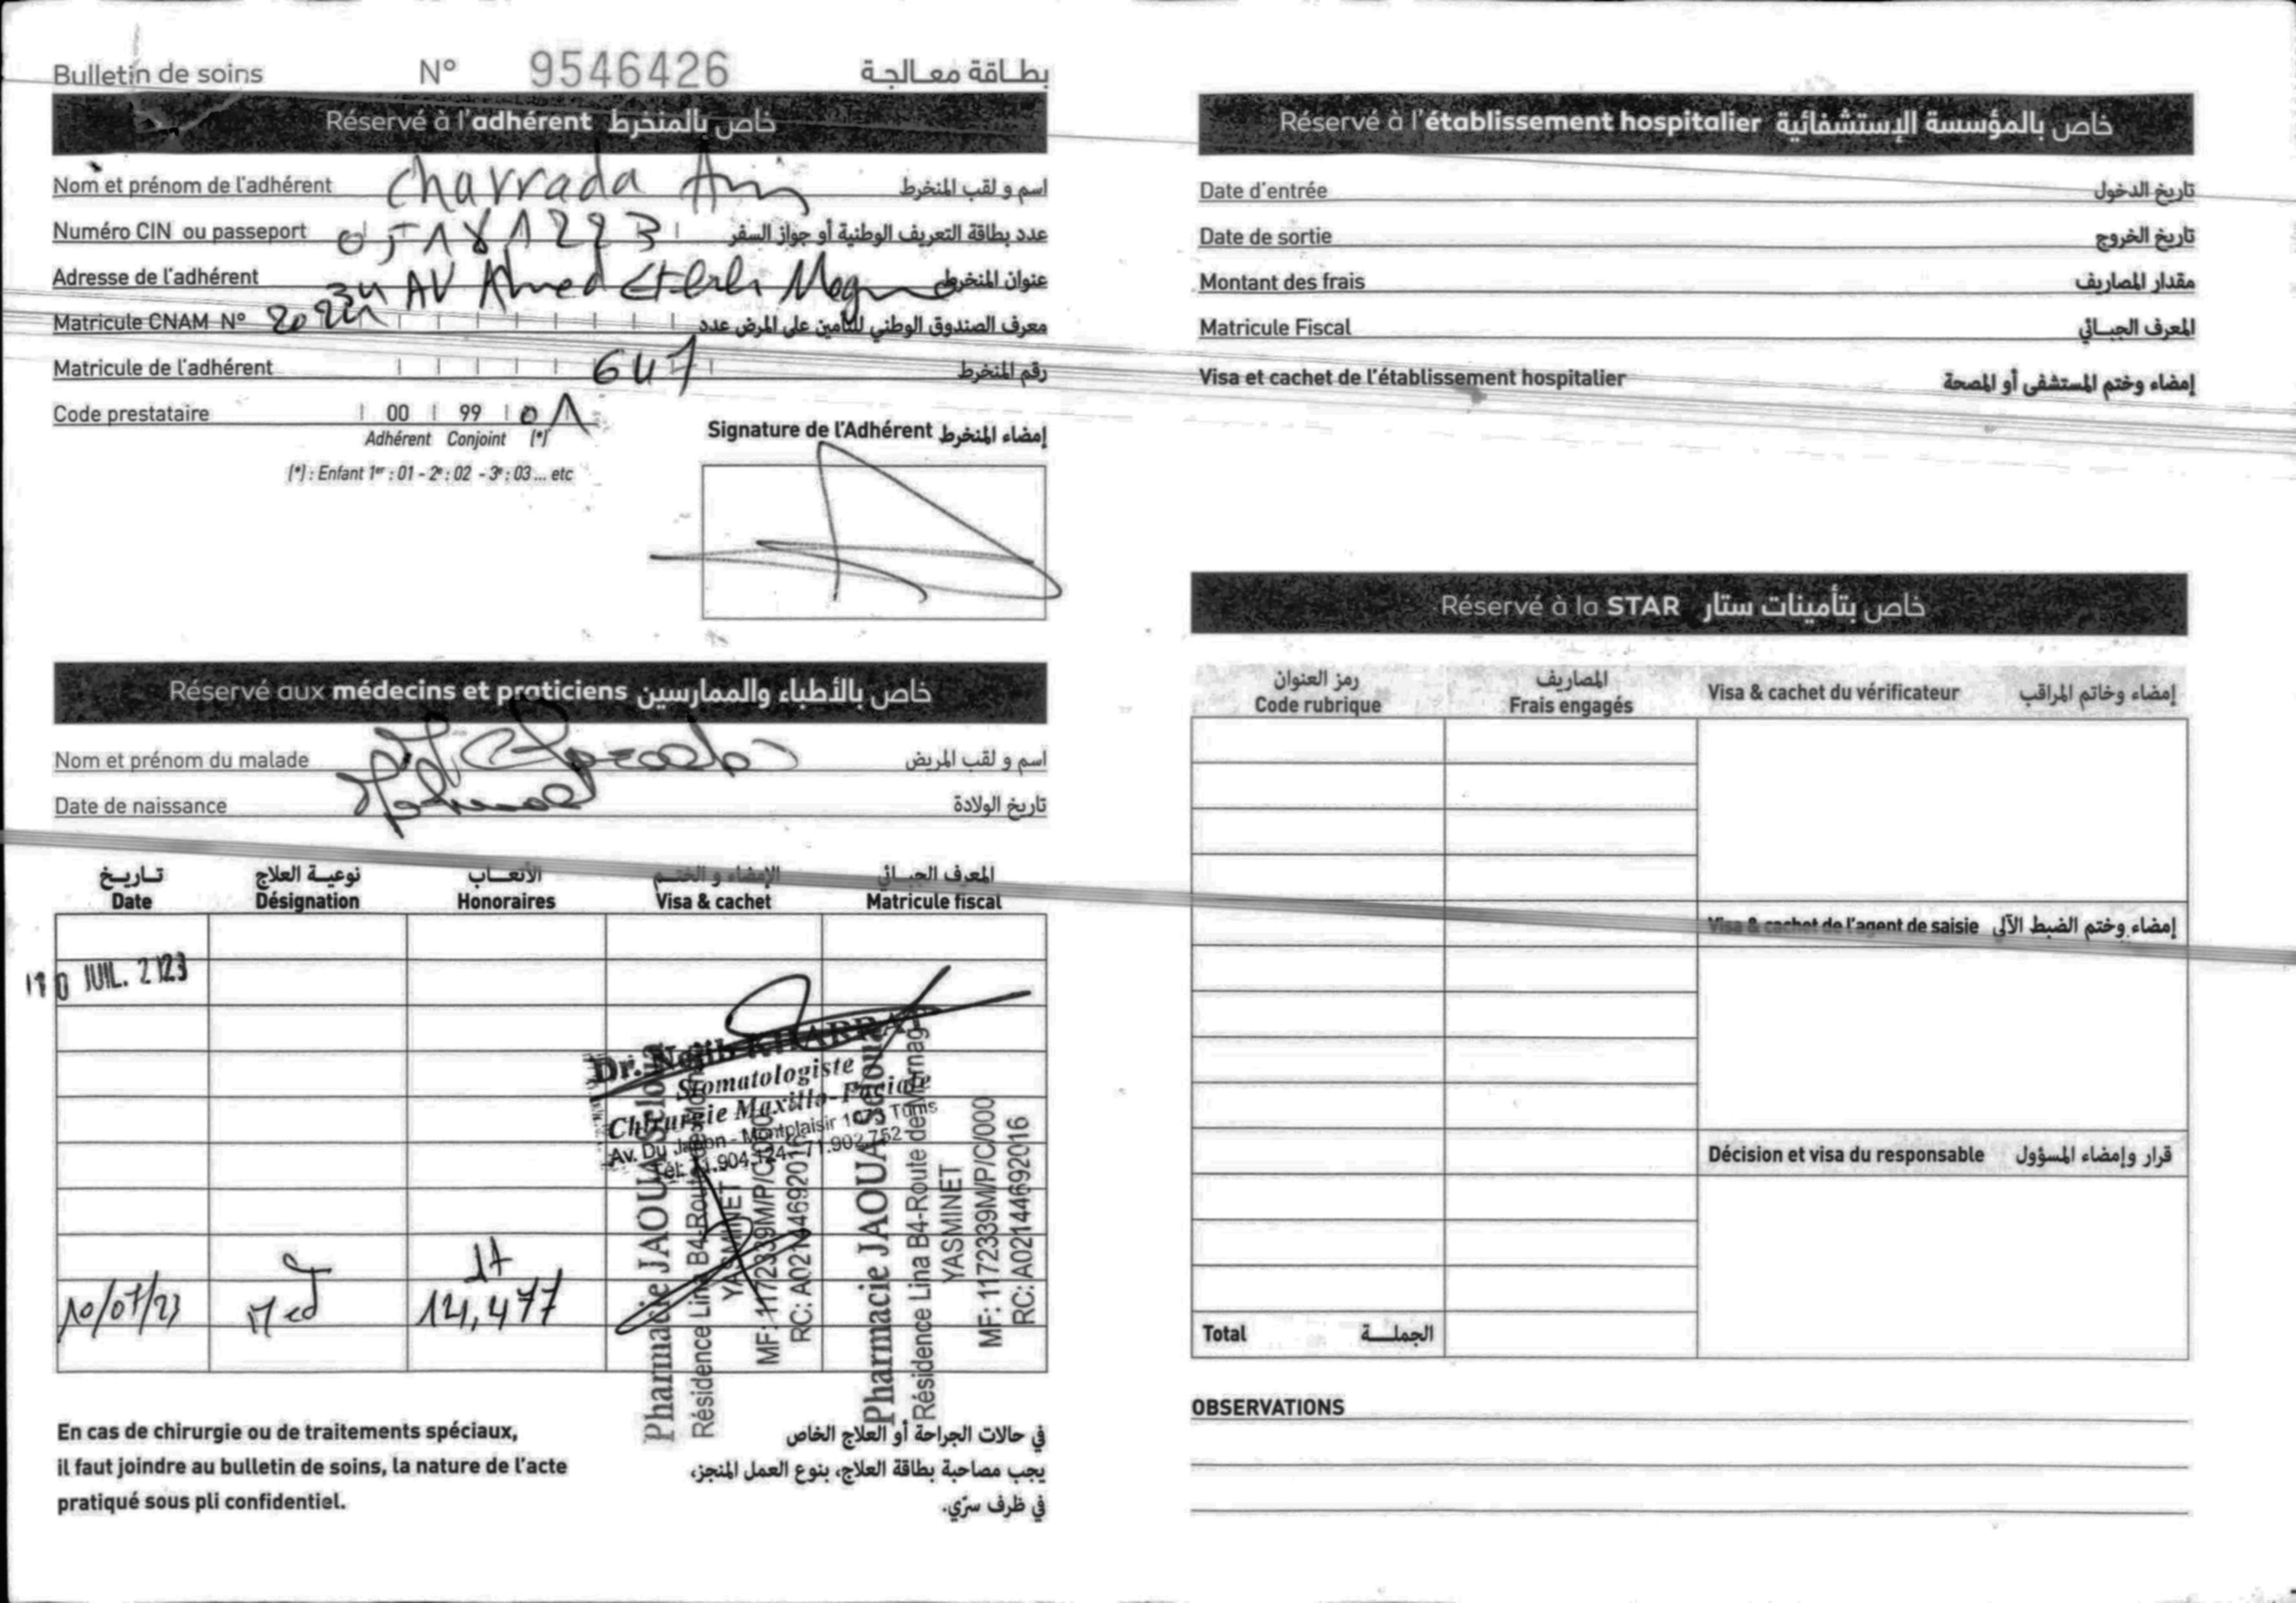 Bulletin de soins N° 9546426 بطاقة معالجة
Réservé à l'adhérent خاص بالمنخرط
Nom et prénom de l'adhérent Charrada اسم و لقب المنخرط
Numéro CIN ou passeport عدد بطاقة التعريف الوطنية أو جواز السفر
Adresse de l'adhérent 34 AV Ahmed عنوان المنخرط
Matricule CNAM N° معرف الصندوق الوطني للتأمين على المرض عدد
Matricule de l'adhérent 647 رقم المنخرط
Code prestataire 00 99 01
Adhérent Conjoint (*)
(*) : Enfant 1er : 01 - 2e : 02 - 3e : 03 ... etc
Signature de l'Adhérent إمضاء المنخرط
Réservé aux médecins et praticiens خاص بالأطباء والممارسين
Nom et prénom du malade اسم و لقب المريض
Date de naissance تاريخ الولادة
تـاريـخ نوعيـة العلاج الأتعـاب الإمضاء و الختـم المعرف الجبـائي
Date Désignation Honoraires Visa & cachet Matricule fiscal
10 JUIL. 2023
Dr. Nejib KHARRAT
Stomatologiste
Chirurgie Maxillo-Faciale
Av. Du Japon - Montplaisir 1073 Tunis
71.902.752
Pharmacie JAOUA
Résidence Lina B4-Route
YASMINET
MF: 1172339M/P/C/000
RC: A02144692016
Pharmacie JAOUA
Résidence Lina B4-Route de Mornag
YASMINET
MF: 1172339M/P/C/000
RC: A02144692016
10/07/23 Med 14,477
En cas de chirurgie ou de traitements spéciaux,
il faut joindre au bulletin de soins, la nature de l'acte
pratiqué sous pli confidentiel.
في حالات الجراحة أو العلاج الخاص
يجب مصاحبة بطاقة العلاج، بنوع العمل المنجز،
في ظرف سرّي.
Réservé à l'établissement hospitalier خاص بالمؤسسة الإستشفائية
Date d'entrée تاريخ الدخول
Date de sortie تاريخ الخروج
Montant des frais مقدار المصاريف
Matricule Fiscal المعرف الجبـائي
Visa et cachet de l'établissement hospitalier إمضاء وختم المستشفى أو المصحة
Réservé à la STAR خاص بتأمينات ستار
رمز العنوان المصاريف
Code rubrique Frais engagés Visa & cachet du vérificateur إمضاء وخاتم المراقب
Visa & cachet de l'agent de saisie إمضاء وختم الضبط الآلي
Décision et visa du responsable قرار وإمضاء المسؤول
Total الجملـة
OBSERVATIONS